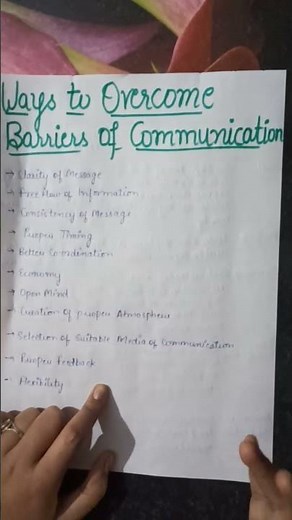 Ways to Overcome
Barriers of Communication
→ Clarity of Message
→ Free flow of Information
→ Consistency of Message
→ Proper Timing
→ Better Co-ordination
→ Economy
→ Open Mind
→ Creation of proper Atmosphere
→ Selection of Suitable Media of Communication
→ Proper Feedback
→ Flexibility